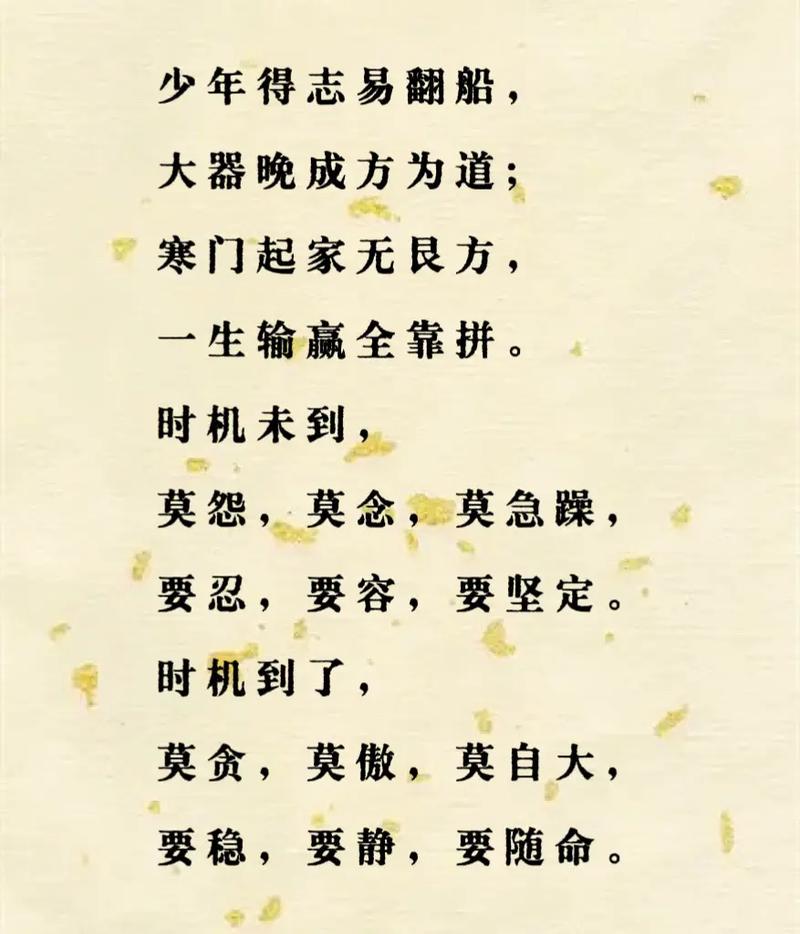 少年得志易翻船，
大器晚成方为道；
寒门起家无艮方，
一生输赢全靠拼。
时机未到，
莫怨，莫念，莫急躁，
要忍，要容，要坚定。
时机到了，
莫贪，莫傲，莫自大，
要稳，要静，要随命。